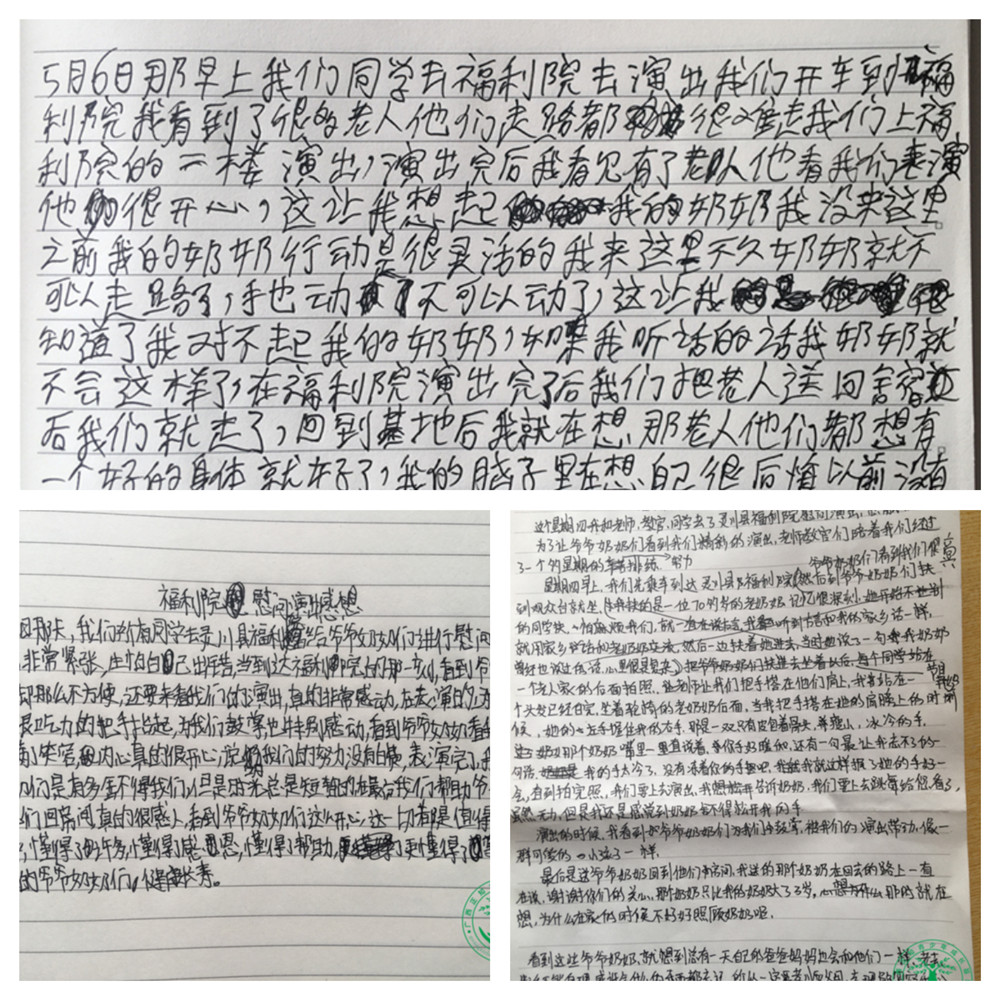 5月6日那早上我们同学去福利院去演出我们开车到福
利院我看到了很的老人他们走路都很难走我们上福
利院的一楼演出，演出完后我看见有了老人他看我们演
他很开心，这让我想起我的奶奶我没来这里
之前我的奶奶行动是很灵活的我来这里不久奶奶就不
可以走路了，手也动不可以动了，这让我
知道了我对不起我的奶奶，如果我听话的话我奶奶就
不会这样了，在福利院演出完了后我们把老人送回舍宿
后我们就走了，回到基地后我就在想，那老人他们都想有
一个好的身体就好了，我的脑子里在想，自己很后悔以前没有
福利院慰问演出感想
我们所有同学去灵川县福利院给爷爷奶奶们进行慰问
非常紧张，生怕自己出错，当到达福利院的那一刻，看到爷
却那么不方便，还要来看我们的演出，真的非常感动，在表演的
很吃力的把手抬起，为我们鼓掌也特别感动，看到爷爷奶奶看
的笑容，内心真的很开心，说明我们的努力没有白费，表演完了，我
们是有多舍不得我们，但是时光总是短暂的，最后我们帮助爷
们回房间，真的很感人，看到爷爷奶奶们这么开心，这一切都是值得
，懂得了许多，懂得了感恩，懂得了帮助，更懂得了
的爷爷奶奶们，健康长寿。
这个星期四我和老师，教官，同学去了灵川县福利院慰问演出
为了让爷爷奶奶们看到我们精彩的演出，老师教官们陪着我们经过
了一个的星期的排练努力
爷爷奶奶们看到我们很高兴
星期四早上，我们先乘车到达灵川县福利院，然后到爷爷奶奶们扶
到观众台就坐，我扶的是一位70多岁的老奶奶，记忆很深刻，她开始不让别
的同学扶，怕麻烦我们，就一直在说方言，我听到方言和我的家乡话一样，
就用家乡的话和老奶奶交流，然后一边扶着她进去，当时她说了一句我奶奶
曾经也说过的话，把爷爷奶奶们扶进去坐着以后，每个同学站在
一个老人家的后面拍照，老师让我们把手搭在他们肩上，我站在一
个头发已经白完，坐着轮椅的老奶奶后面，当我把手搭在她的肩膀上的时
候，她的左手握住我的右手，那是一双只有皮包着骨头，并瘦小，冰冷的手。
那个奶奶嘴里一直说着，你手好暖和，还有一句最让我忘不了的一
句话，我的手太冷了，没有冻着你的手吧，我就这样握了她的手好一
会，直到拍完照，我们要上去演出，我告诉奶奶，我们要上去跳舞给您看了，
虽然无力，但是我还是感觉到奶奶舍不得放开我的手
演出的时候，我看到爷爷奶奶们为我们鼓掌，被我们的演出带动，像一
群可爱的小孩子一样，
最后是送爷爷奶奶回到他们的房间，我送的那个奶奶在回去的路上一直
在说，谢谢你们的关心，那个奶奶只比我的奶奶大了3岁，那时就在
想，为什么在家的时候不好好照顾奶奶呢。
看到这些爷爷奶奶，就想到总有一天自己和爸爸妈妈也会和他们一样，老去